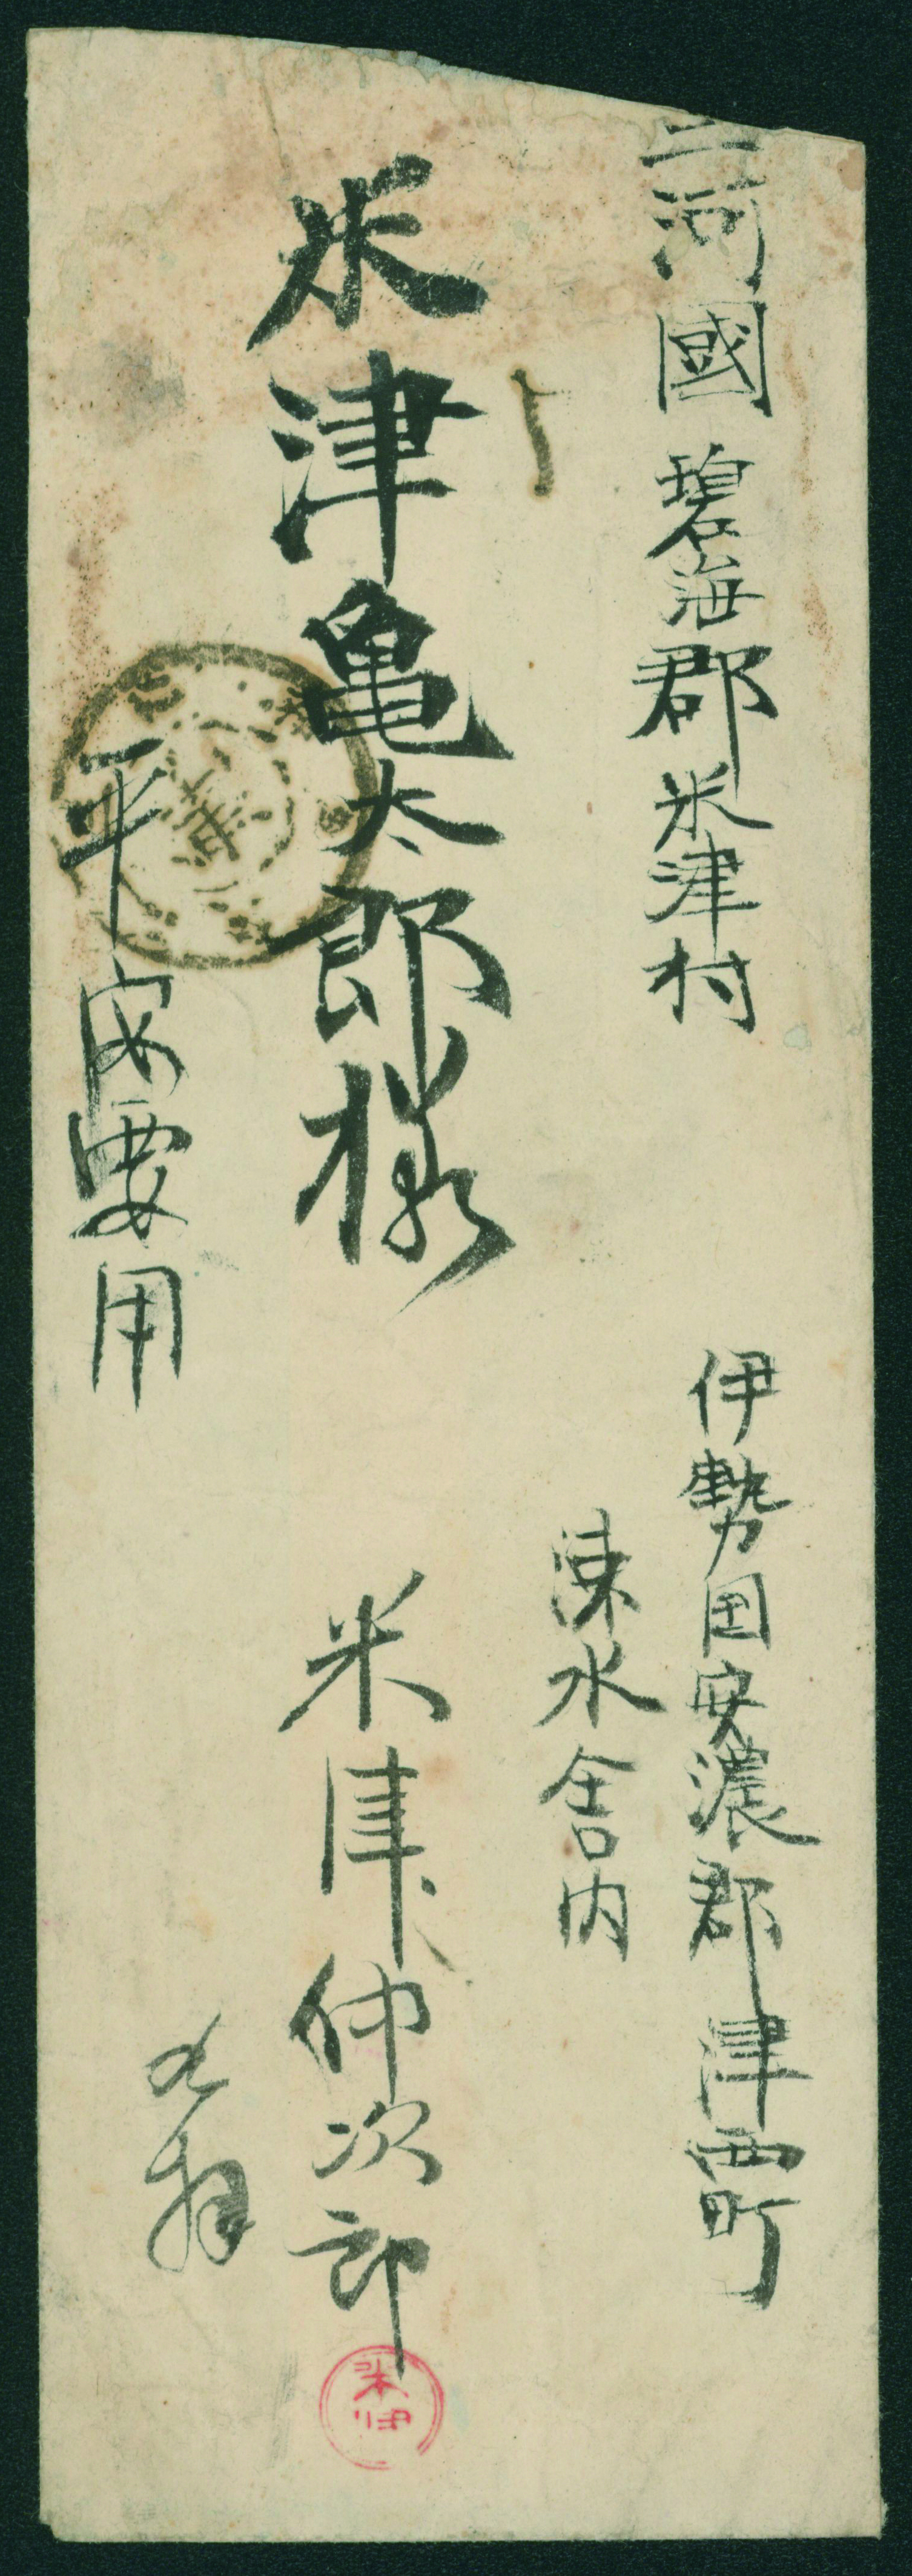 三河國碧海郡米津村
米津亀太郎様
平安要用
伊勢国安濃郡津西町
涑水舎内
米津仲次郎